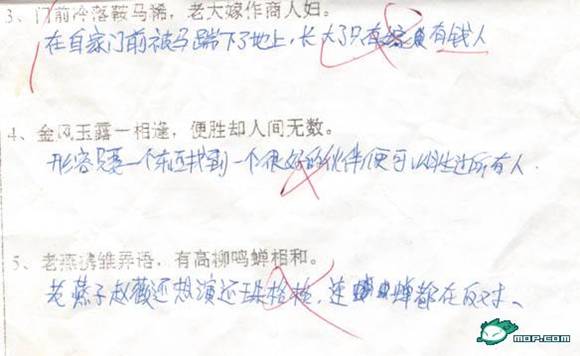 3、门前冷落鞍马稀,老大嫁作商人妇。
在自家门前被马踹下了地上,长大了只有 有钱人
4、金风玉露一相逢,便胜却人间无数。
形容只要一个东西找到一个很好的伙伴便可以胜过所有人.
5、老燕携雏弄语,有高柳鸣蝉相和。
老燕子赵薇还想演还珠格格,连 蝉都在反对、
MOP.COM